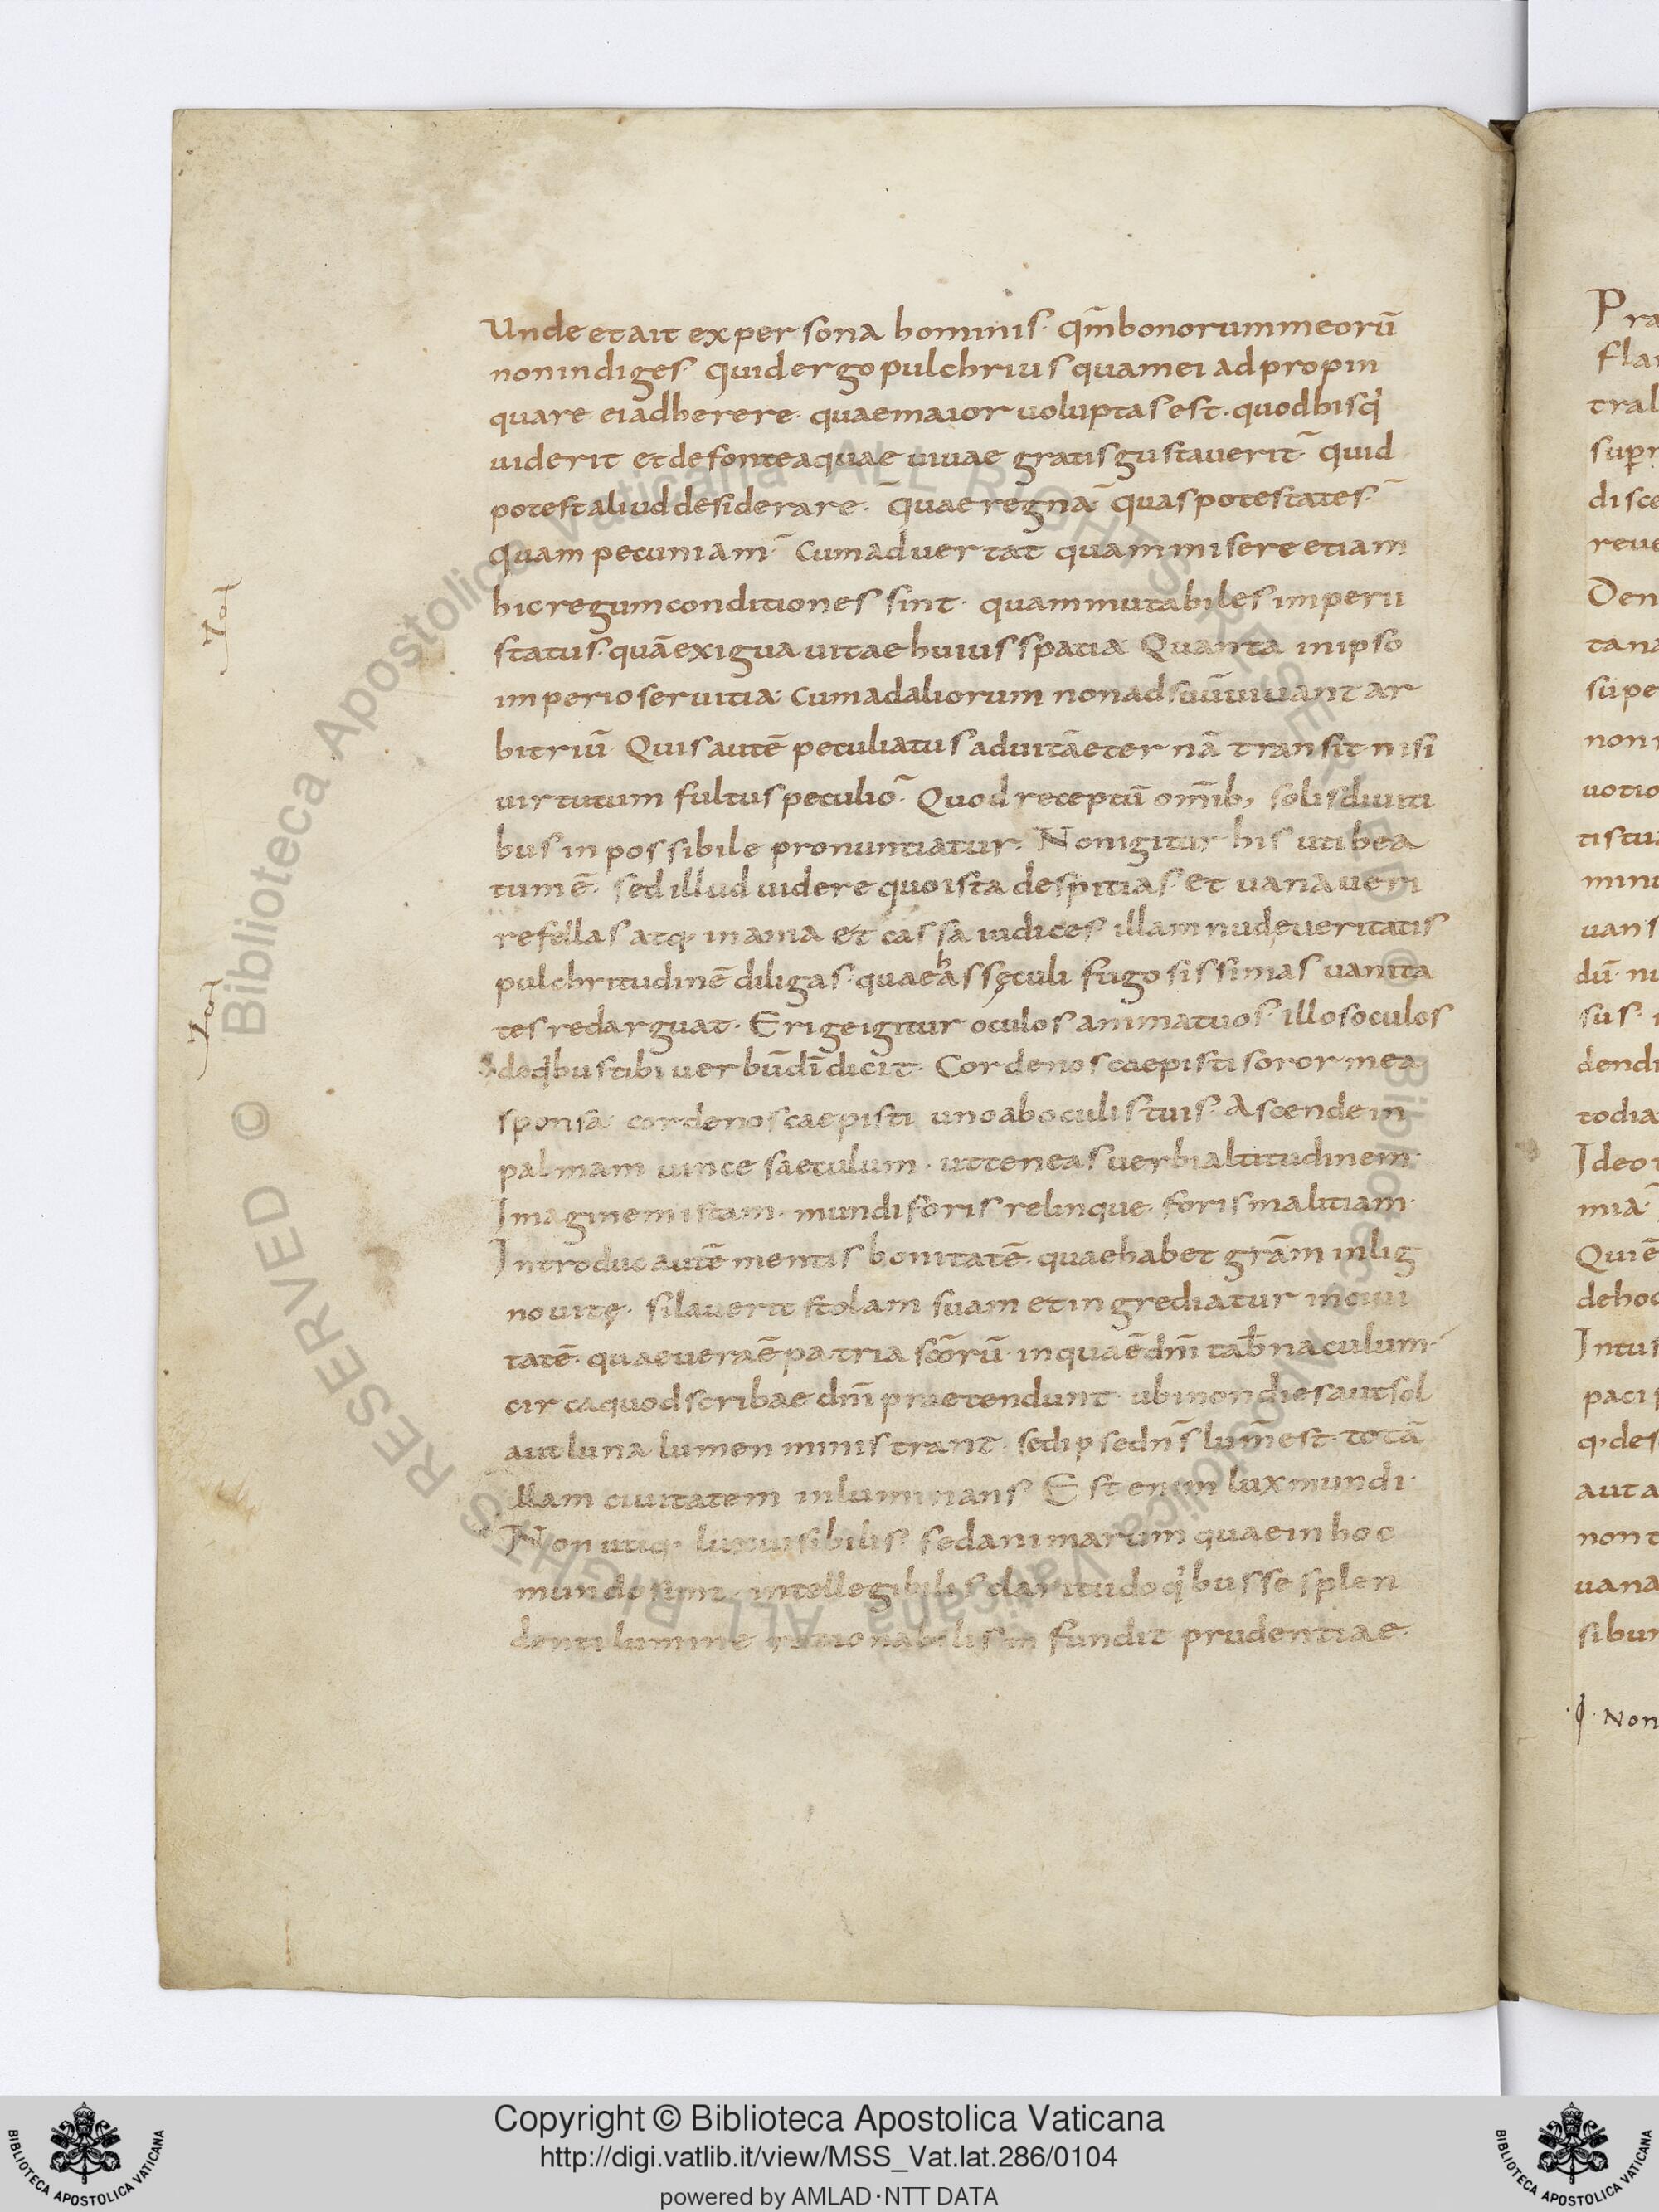 Unde et ait ex persona hominis· qm̄ bonorum meorū
non indiges· quid ergo pulchrius quam ei adpropin
quare ei adherere· quae maior uoluptas est· quod hisq;
uiderit et de fonte aquae uiuae gratis gustauerit· quid
potest aliud desiderare· quae regna quas potestates·
Quam pecuniam· Cum aduertat quam misere etiam
hic regum conditiones sint· quam mutabiles imperii
status· quā exigua uitae huius spatia Quanta in ipso
imperio seruitia· Cum ad aliorum non ad suū uiuant ar
bitriū· Quis autē peculiatus ad uitā eternā transit nisi
uirtutum fultus peculio· Quod receptū om̄ib; solis diuiti
bus inpossibile pronuntiatur· Non igitur his uti bea
tum ē· sed illud uidere quo ista despitias· et uana ueri
refellas atq; inania et cassa iudices· illam nudę ueritatis
pulchritudinē diligas· quae has sęculi fugosissimas uanita
tes redarguat· Erige igitur oculos anima tuos· illos oculos
de qibus tibi uerbū dī dicit· Cor de nos caepisti soror mea
sponsa· cor de nos caepisti uno ab oculis tuis· Ascende in
palmam uince saeculum· ut teneas uerbi altitudinem·
Imaginem istam· mundi foris relinque· foris malitiam·
Introduc autē mentis bonitatē· quae habet grām in lig
no uitę· si lauerit stolam suam et ingrediatur in ciui
tatē· quae uera ē patria sc̄ōrū· in qua ē dn̄i tab̄naculum·
circa quod scribae dn̄i praetendunt· ubi non dies aut sol
aut luna lumen ministrant· sed ipse dn̄s lum̄ est· totā
illam ciuitatem inluminans· Est enim lux mundi·
Non utiq; lux uisibilis· sed animarum quae in hoc
mundo sunt· intellegibilis claritudo qibus se splen
denti lumine rationabilis infundit prudentiae·
Pra
tral
disce
reue
Den
tana
supe
non
uotio
tistua
minu
uans
dū· nu
sus·
dendi
todia
Ideo
mia·
Qui ē
dehoc
Intus
pacis
q; des
aut a
non t
uana
sibun
Non
Copyright © Biblioteca Apostolica Vaticana
http://digi.vatlib.it/view/MSS_Vat.lat.286/0104
powered by AMLAD·NTT DATA
BIBLIOTECA APOSTOLICA VATICANA
BIBLIOTECA APOSTOLICA VATICANA
Biblioteca Apostolica Vaticana ALL RIGHTS RESERVED ©
Biblioteca Apostolica Vaticana ALL RIGHTS RESERVED ©